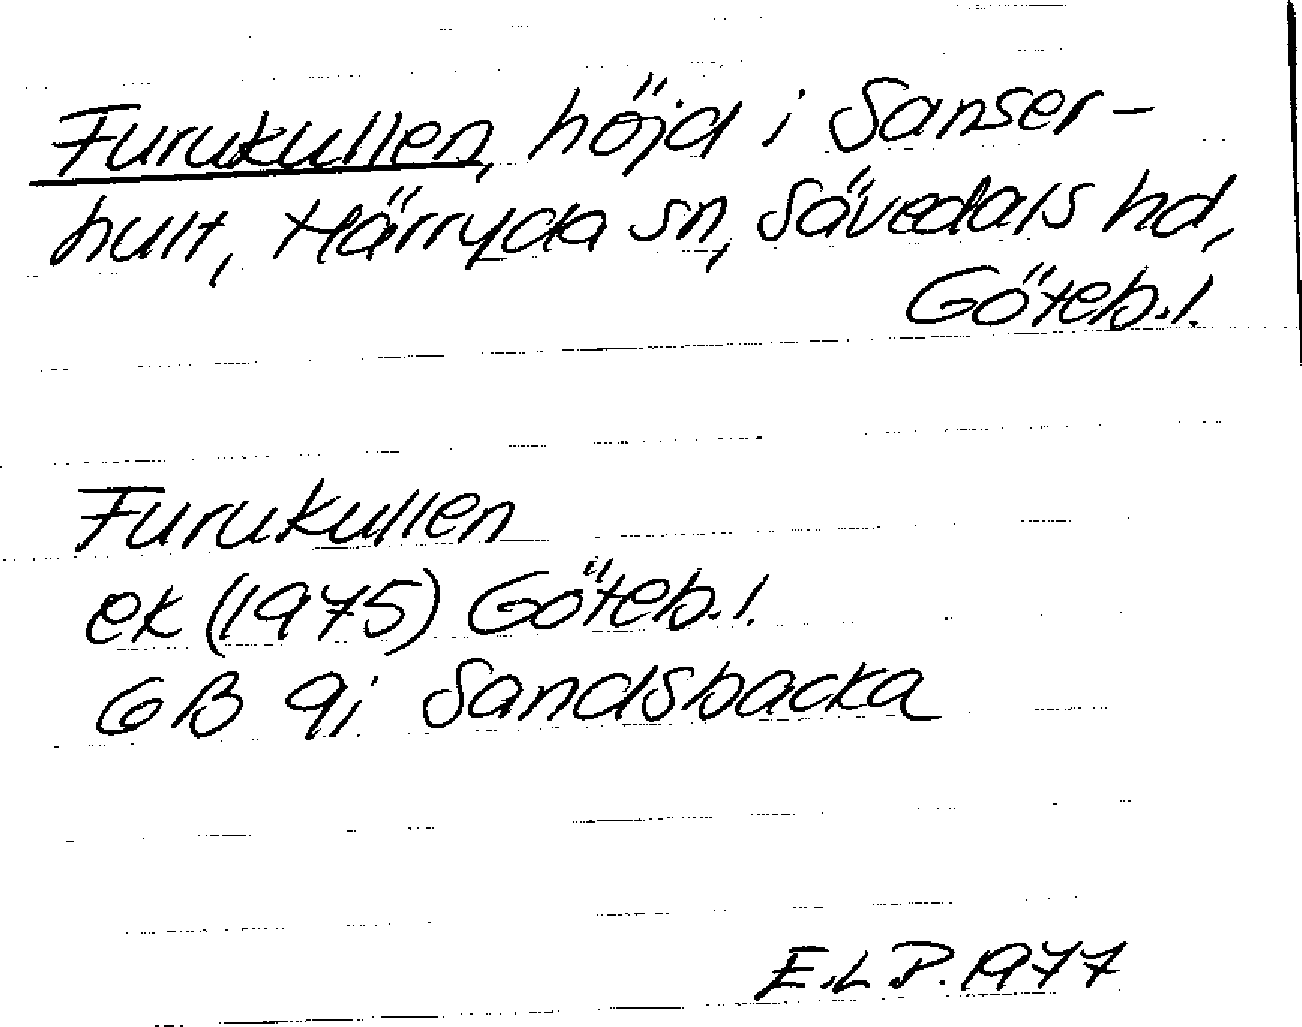 Furukullen, höjd i Sanser-
hult, Härryda sn, Sävedals hd,
Göteb.l.
Furukullen
ek (1975) Göteb.l.
GB 9i Sandsbacka
E.L.P. 1977